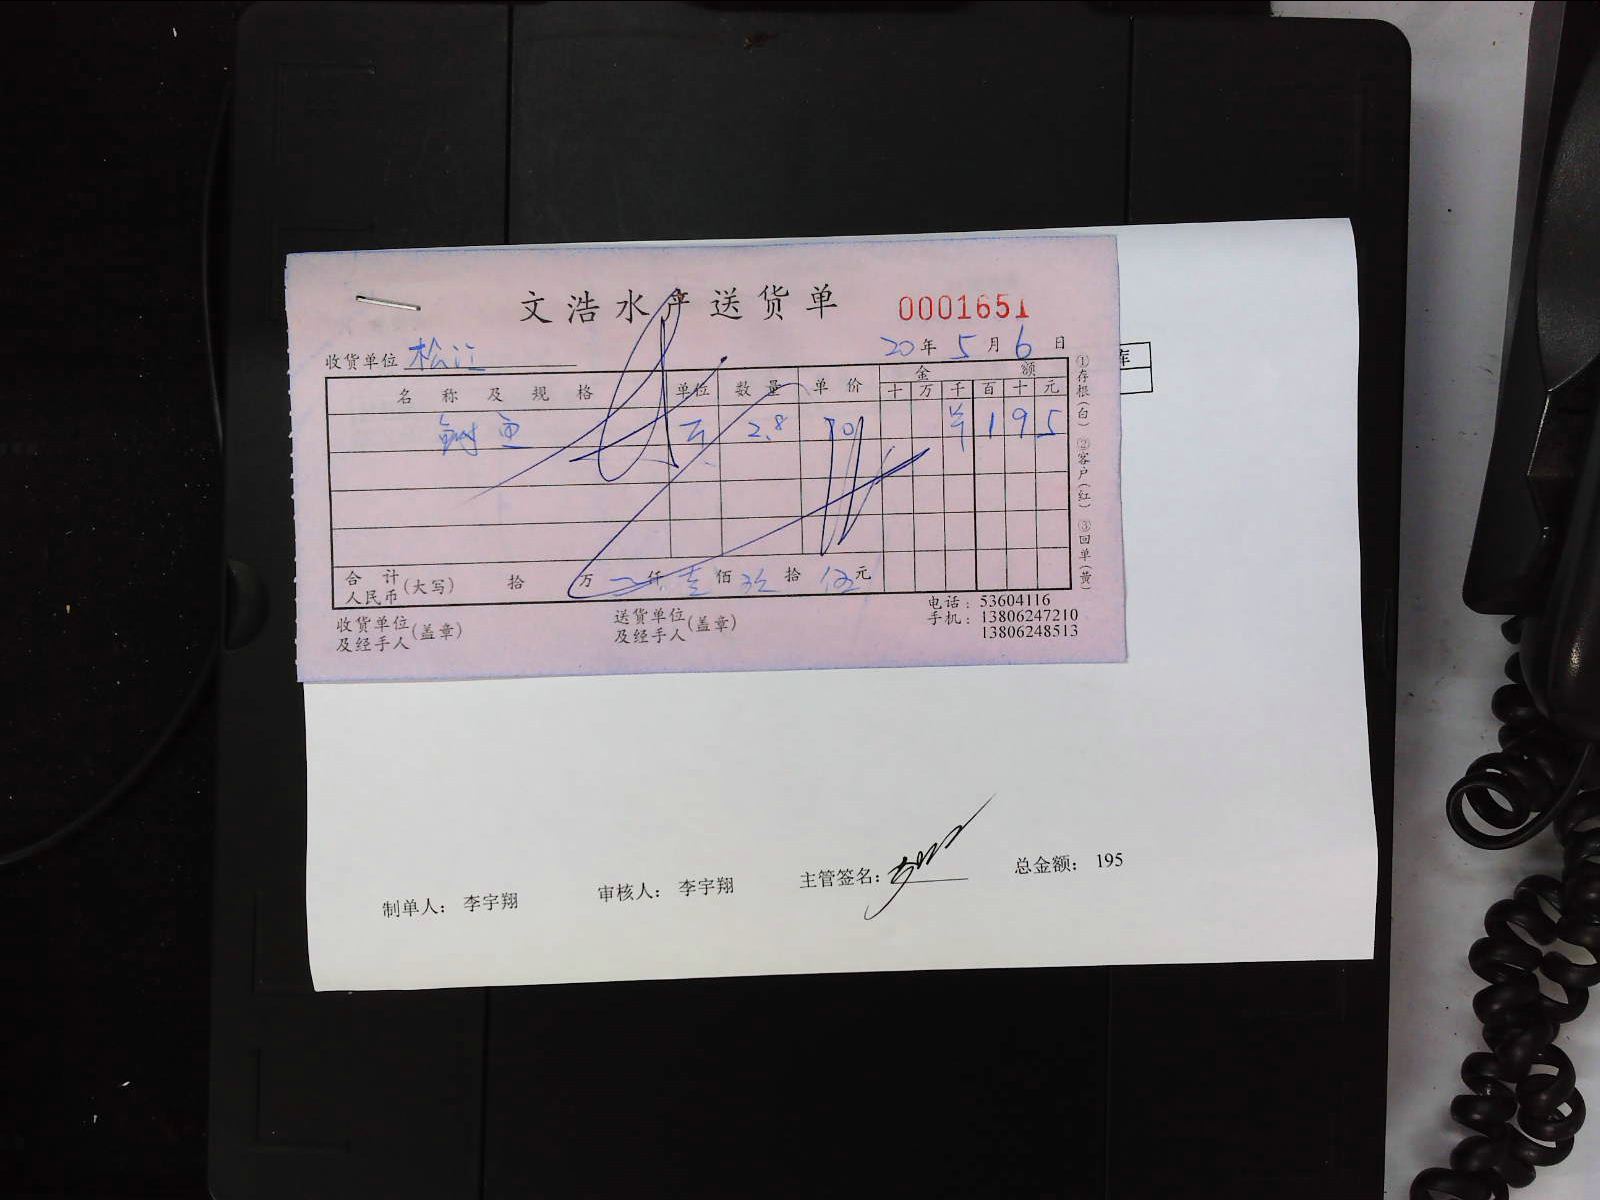 文浩水产送货单 0001651
收货单位 松江 20年5月6日
库
名称及规格 单位 数量 单价 金额
十 万 千 百 十 元
鱼 2.8 70 1 9 5
合计人民币(大写) 拾 万 仟 壹 佰 玖 拾 伍 元
收货单位及经手人(盖章) 送货单位及经手人(盖章)
电话:53604116
手机:13806247210
13806248513
①存根(白) ②客户(红) ③回单(黄)
制单人: 李宇翔 审核人: 李宇翔 主管签名: 总金额: 195